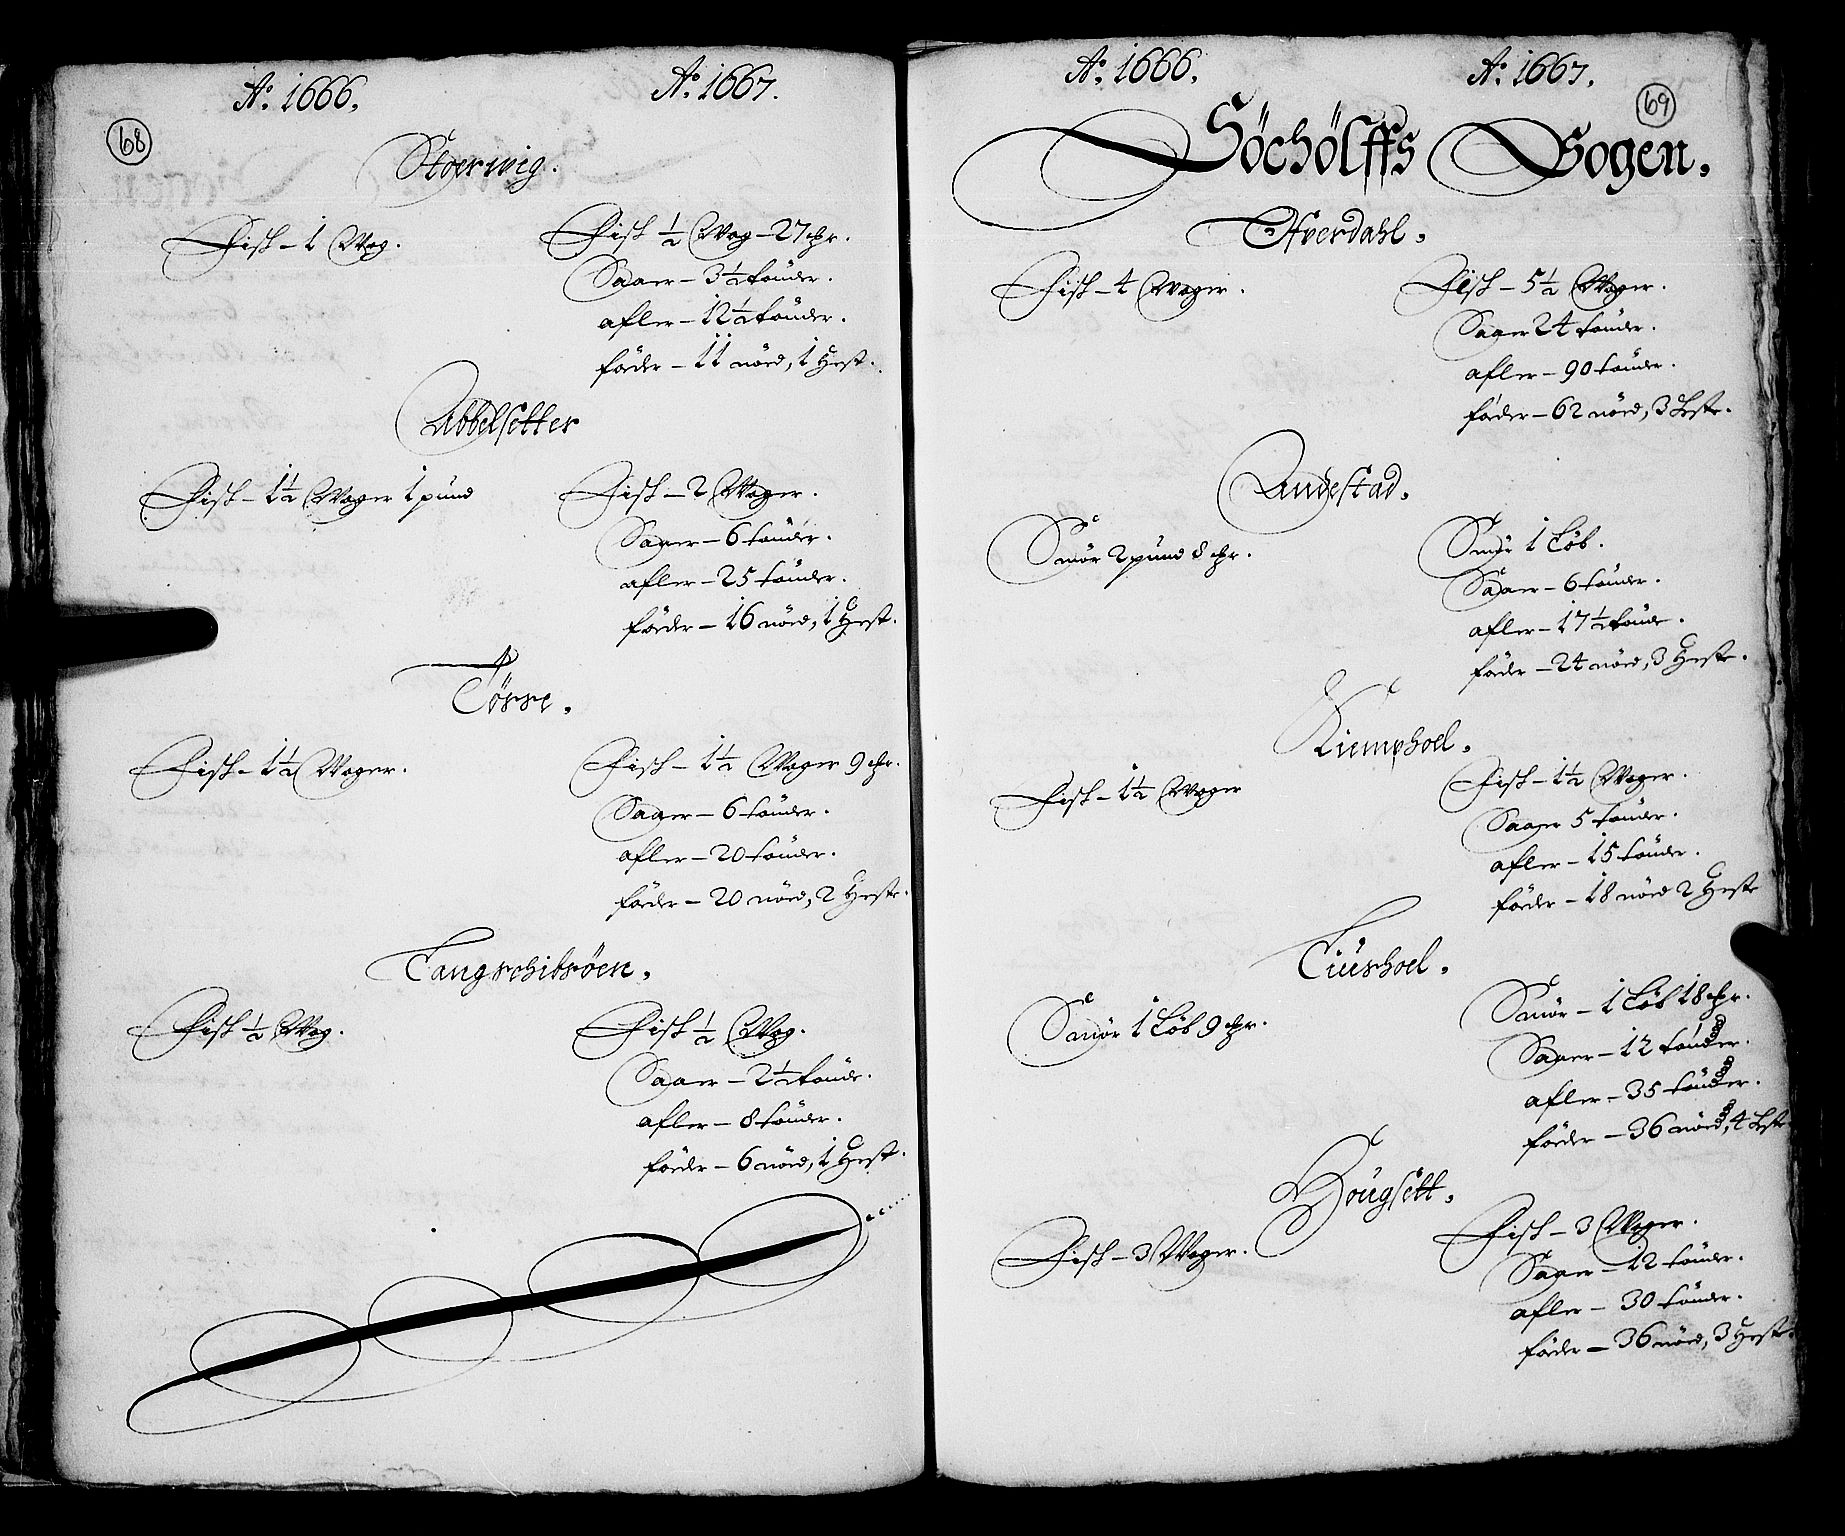 68
Ao. 1666. Ao. 1667.
Stoerwig.
Fisk - 1 Wog. Fisk ½ Wog - 27 mr.
Saaer - 3½ tönder.
afler - 12½ tönder.
föeder - 11 nöed, 1 Hest.
Abbelsetter
Fisk - 1½ Woger 1 pund Fisk - 2 Woger.
Saaer - 6 tönder.
afler - 25 tönder.
föeder - 16 nöed, 1 Hest.
Tösse.
Fisk - 1½ Woger. Fisk - 1½ Woger 9 mr.
Saaer - 6 tönder.
afler - 20 tönder.
föeder - 20 nöed, 2 Heste.
Tangschibsöen.
Fisk ½ Wog. Fisk ½ Wog.
Saaer - 2½ tönde.
afler - 8 tönder.
föeder - 6 nöed, 1 Hest.
69
Ao. 1666. Ao. 1667.
Söchölffs Bogen.
Ofverdahl.
Fisk - 4 Woger. Fisk - 5½ Woger.
Saaer 24 tönder.
afler - 90 tönder.
föeder - 62 nöed, 3 Heste.
Andestad.
Smör 2 pund 8 mr. Smör 1 Löb.
Saaer - 6 tönder.
afler - 17½ tönde.
föeder - 24 nöed, 3 Heste.
Kiemphoel.
Fisk - 1½ Woger Fisk - 1½ Woger.
Saaer 5 tönder.
afler - 15 tönder.
föeder - 18 nöed 2 Heste
Tiüshoel.
Smör 1 Löb 9 mr. Smör - 1 Löb 18 mr.
Saaer - 12 tönder.
afler - 35 tönder.
föeder - 36 nöed, 4 Heste
Hougsett.
Fisk - 3 Woger. Fisk - 3 Woger.
Saaer - 12 tönder.
afler - 30 tönder.
föeder - 36 nöed, 3 Heste.